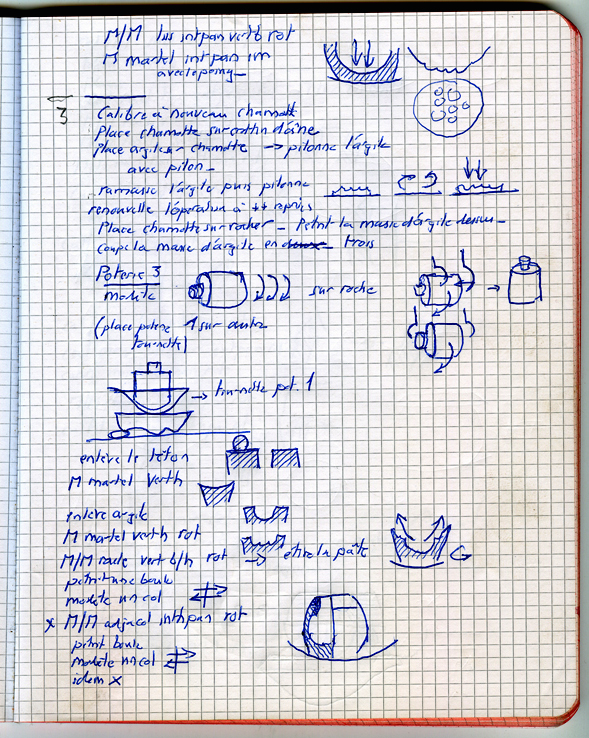 M/M lis int pan vertb rot
M martel int pan im
avec topomy_
3
Calibre à nouveau chamotte
Place chamotte sur cottin d'âne
Place argile sur chamotte → pilonne l'argile
avec pilon_
ramasse l'argile puis pilonne
renouvelle l'opération à ++ reprises
Place chamotte sur rocher _ Petrit la masse d'argile dessus_
coupe la masse d'argile en trois
Poterie 3
modèle
sur roche
(place poterie 1 sur autre
tournette)
→ tournette pot. 1
enlève le téton
M martel verth
enlève argile
M martel verth rot
M/M roule vert b/h rot
étire la pâte
petrit une boule
modèle un col
x M/M adj col int h pan rot
petrit boule
modèle un col
idem x